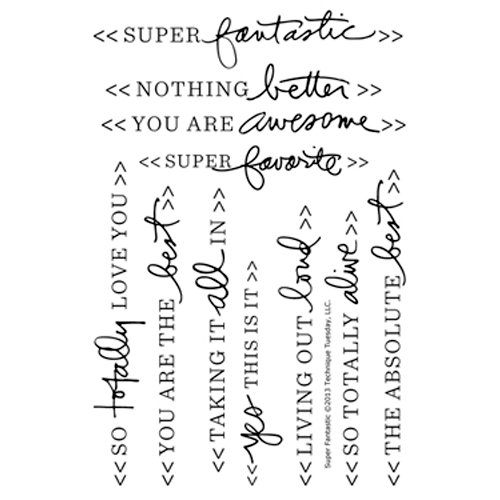 << SUPER fantastic >>
<< NOTHING better >>
<< YOU ARE awesome >>
<< SUPER favorite >>
<< SO totally LOVE YOU >>
<< YOU ARE THE best >>
<< TAKING IT all IN >>
<< yes THIS IS IT >>
<< LIVING OUT loud >>
Super Fantastic ©2013 Technique Tuesday, LLC.
<< SO TOTALLY alive >>
<< THE ABSOLUTE best >>